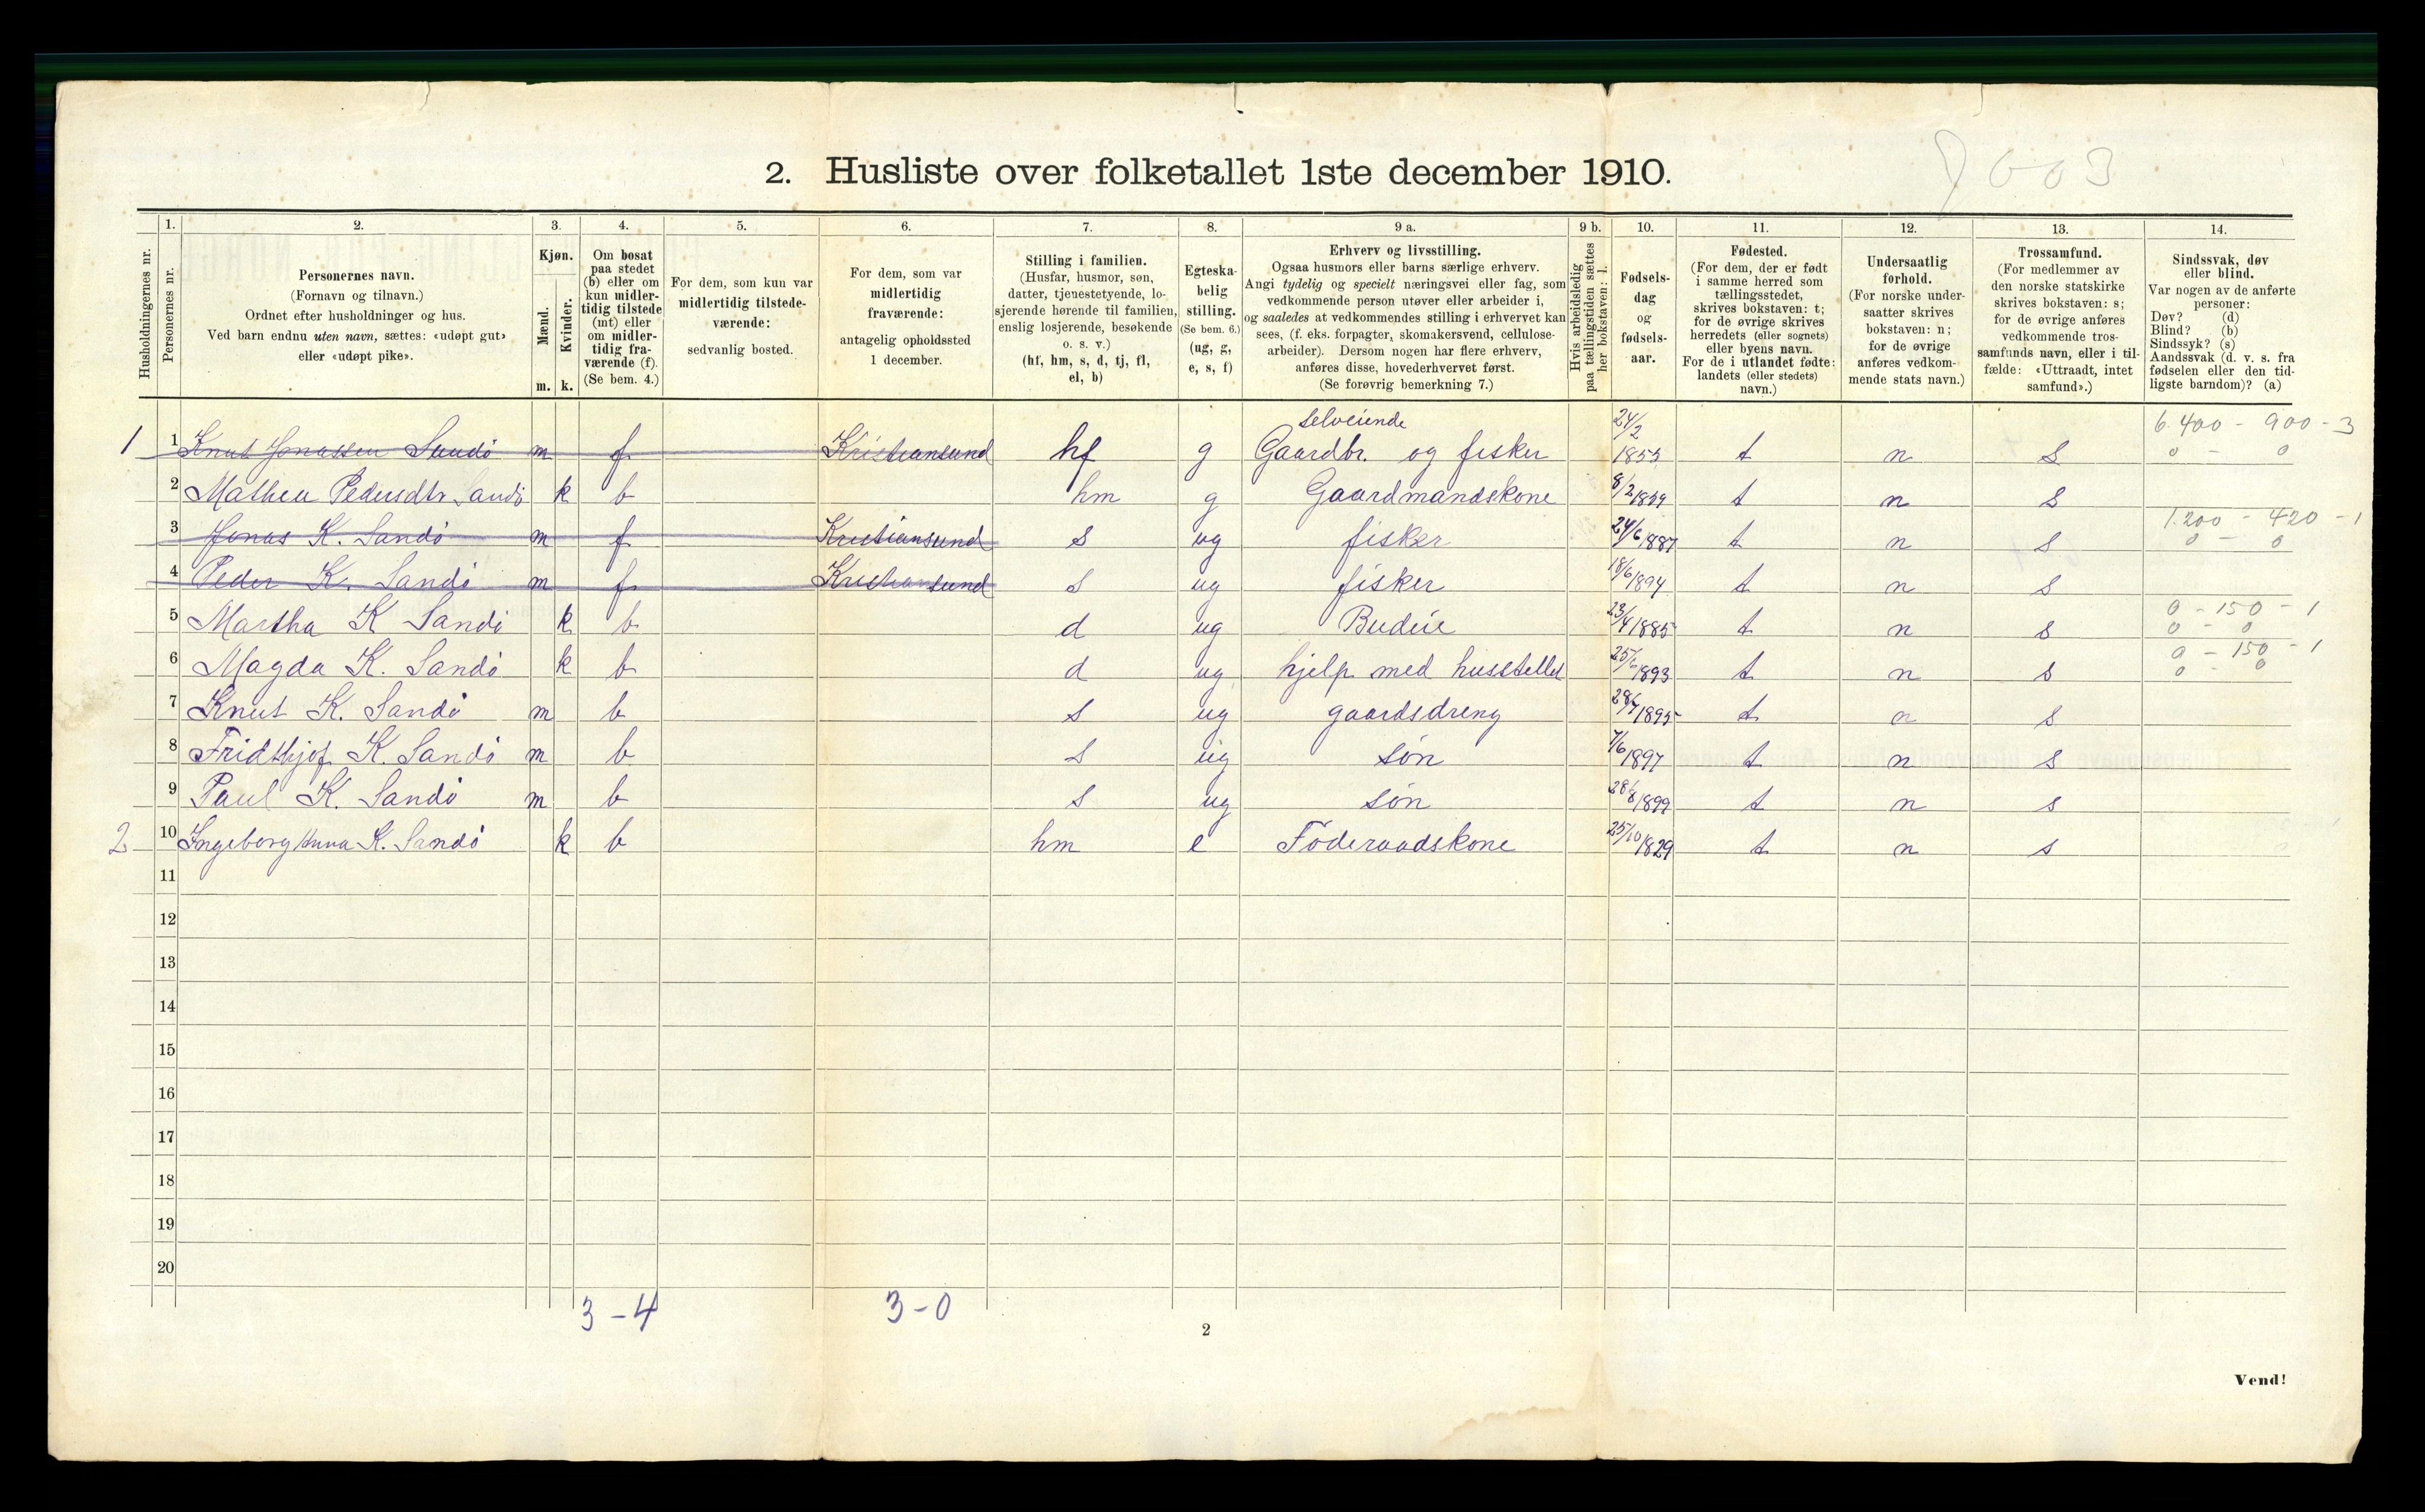 2. Husliste over folketallet 1ste december 1910.
Husholdningernes nr.
1.
Personernes nr.
2.
Personernes navn.
(Fornavn og tilnavn.)
Ordnet efter husholdninger og hus.
Ved barn endnu uten navn, sættes: «udøpt gut»
eller «udøpt pike».
3.
Kjøn.
Mænd.
Kvinder.
m. k.
4.
Om bosat
paa stedet
(b) eller om
kun midler-
tidig tilstede
(mt) eller
om midler-
tidig fra-
værende (f).
(Se bem. 4.)
5.
For dem, som kun var
midlertidig tilstede-
værende:
sedvanlig bosted.
6.
For dem, som var
midlertidig
fraværende:
antagelig opholdssted
1 december.
7.
Stilling i familien.
(Husfar, husmor, søn,
datter, tjenestetyende, lo-
sjerende hørende til familien,
enslig losjerende, besøkende
o. s. v.)
(hf, hm, s, d, tj, fl,
el, b)
8.
Egteska-
belig
stilling.
(Se bem. 6.)
(ug, g,
e, s, f)
9 a.
Erhverv og livsstilling.
Ogsaa husmors eller barns særlige erhverv.
Angi tydelig og specielt næringsvei eller fag, som
vedkommende person utøver eller arbeider i,
og saaledes at vedkommendes stilling i erhvervet kan
sees, (f. eks. forpagter, skomakersvend, cellulose-
arbeider). Dersom nogen har flere erhverv,
anføres disse, hovederhvervet først.
(Se forøvrig bemerkning 7.)
9 b.
Hvis arbeidsledig
paa tællingstiden sættes
her bokstaven: l.
10.
Fødsels-
dag
og
fødsels-
aar.
11.
Fødested.
(For dem, der er født
i samme herred som
tællingsstedet,
skrives bokstaven: t;
for de øvrige skrives
herredets (eller sognets)
eller byens navn.
For de i utlandet fødte:
landets (eller stedets)
navn.)
12.
Undersaatlig
forhold.
(For norske under-
saatter skrives
bokstaven: n;
for de øvrige
anføres vedkom-
mende stats navn.)
13.
Trossamfund.
(For medlemmer av
den norske statskirke
skrives bokstaven: s;
for de øvrige anføres
vedkommende tros-
samfunds navn, eller i til-
fælde: «Uttraadt, intet
samfund».)
14.
Sindssvak, døv
eller blind.
Var nogen av de anførte
personer:
Døv? (d)
Blind? (b)
Sindssyk? (s)
Aandssvak (d. v. s. fra
fødselen eller den tid-
ligste barndom)? (a)
selveiende 24/2 6.400 - 900 - 3
1 1 Knut Jonassen Sandö m f Kristiansund hf g Gaardbr. og fisker 1853 t n s 0 - 0
2 Mathea Pedersdtr Sandö k b hm g Gaardmandskone 8/2 1859 t n s
1.200 - 420 - 1
3 Jonas K. Sandö m f Kristiansund s ug fisker 24/6 1887 t n s 0 - 0
4 Peder K. Sandö m f Kristiansund s ug fisker 18/6 1894 t n s
0 - 150 - 1
5 Martha K Sandö k b d ug Budeie 23/4 1885 t n s 0 - 0
0 - 150 - 1
6 Magda K. Sandö k b d ug hjelp med husstellet 25/6 1893 t n s 0 - 0
7 Knut K. Sandö m b s ug gaardsdreng 1895 t n s
8 Fridthjof K. Sandö m b s ug sön 7/6 1897 t n s
9 Paul K. Sandö m b s ug sön 28/8 1899 t n s
2 10 Ingeborg Anna K. Sandö k b hm e Föderaadskone 25/10 1829 t n s
11
12
13
14
15
16
17
18
19
20
3 - 4 3 - 0
2
Vend!